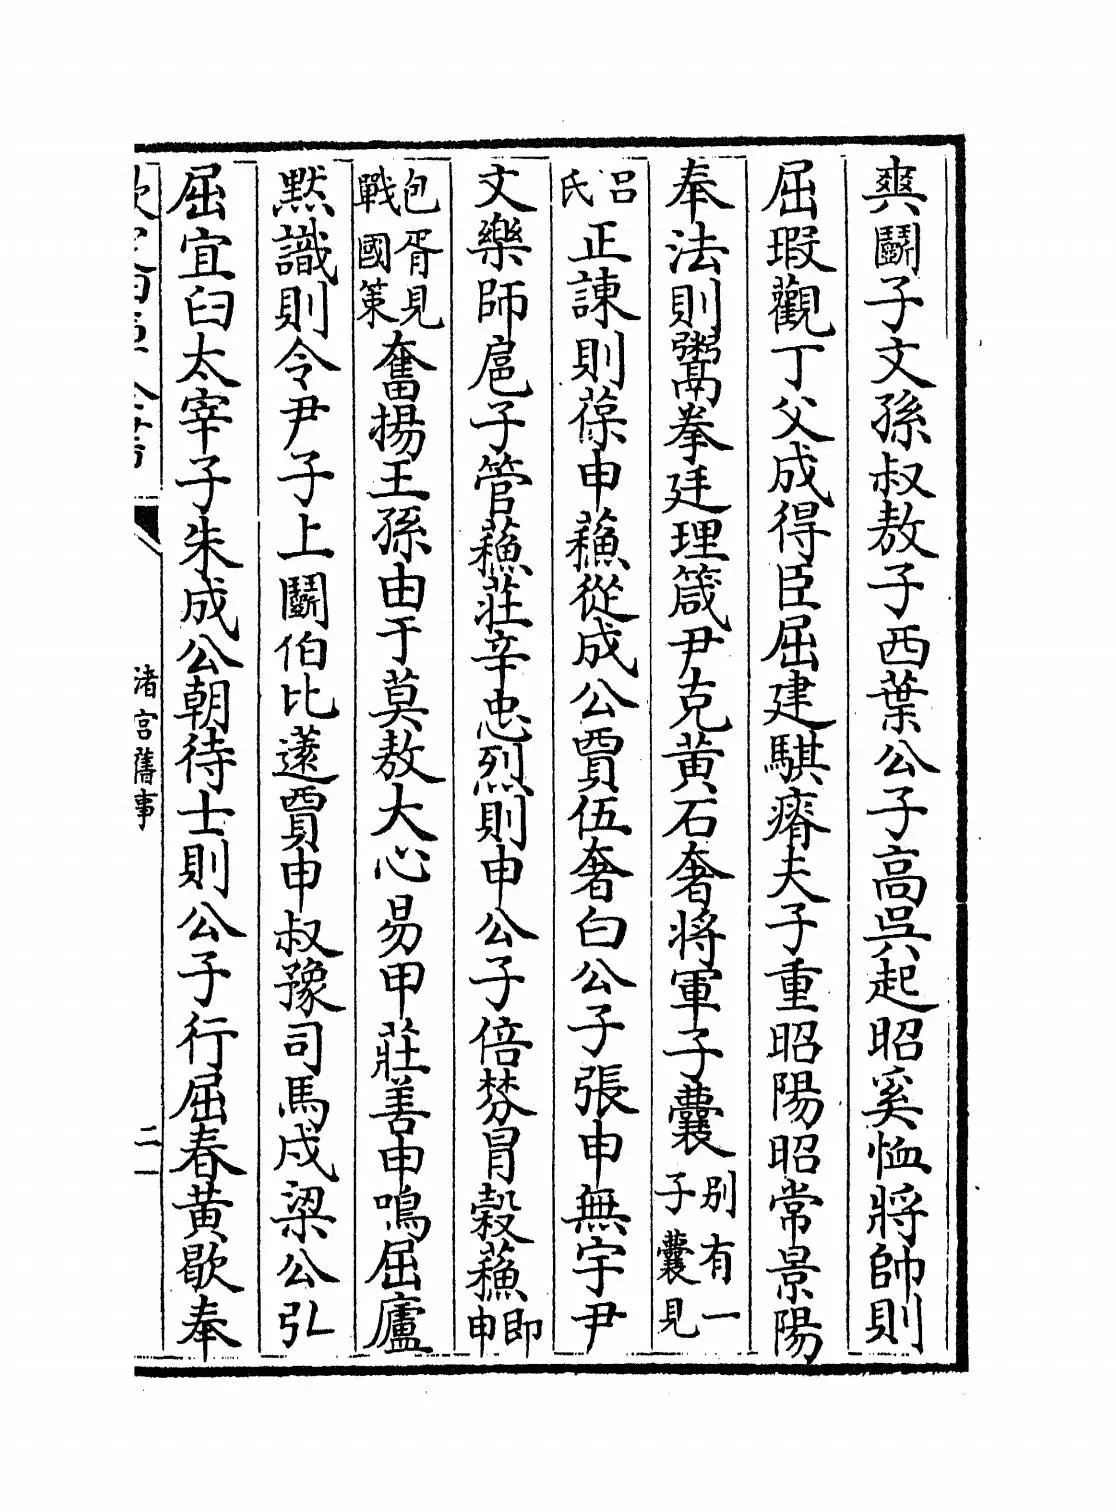 爽鬭子文孫叔敖子西葉公子高吳起昭奚恤將帥則
屈瑕觀丁父成得臣屈建騏瘠夫子重昭陽昭常景陽
奉法則鬻拳廷理箴尹克黃石奢將軍子囊別有一子囊見
呂氏正諫則葆申蘓從成公賈伍奢白公子張申無宇尹
文樂師扈子管蘓莊辛忠烈則申公子倍棼冒穀蘓即申
包胥見戰國策奮揚王孫由于莫敖大心易甲莊善申鳴屈廬
黙識則令尹子上鬭伯比薳賈申叔豫司馬戍梁公弘
屈宜臼太宰子朱成公朝待士則公子行屈春黃歇奉
渚宮舊事
二